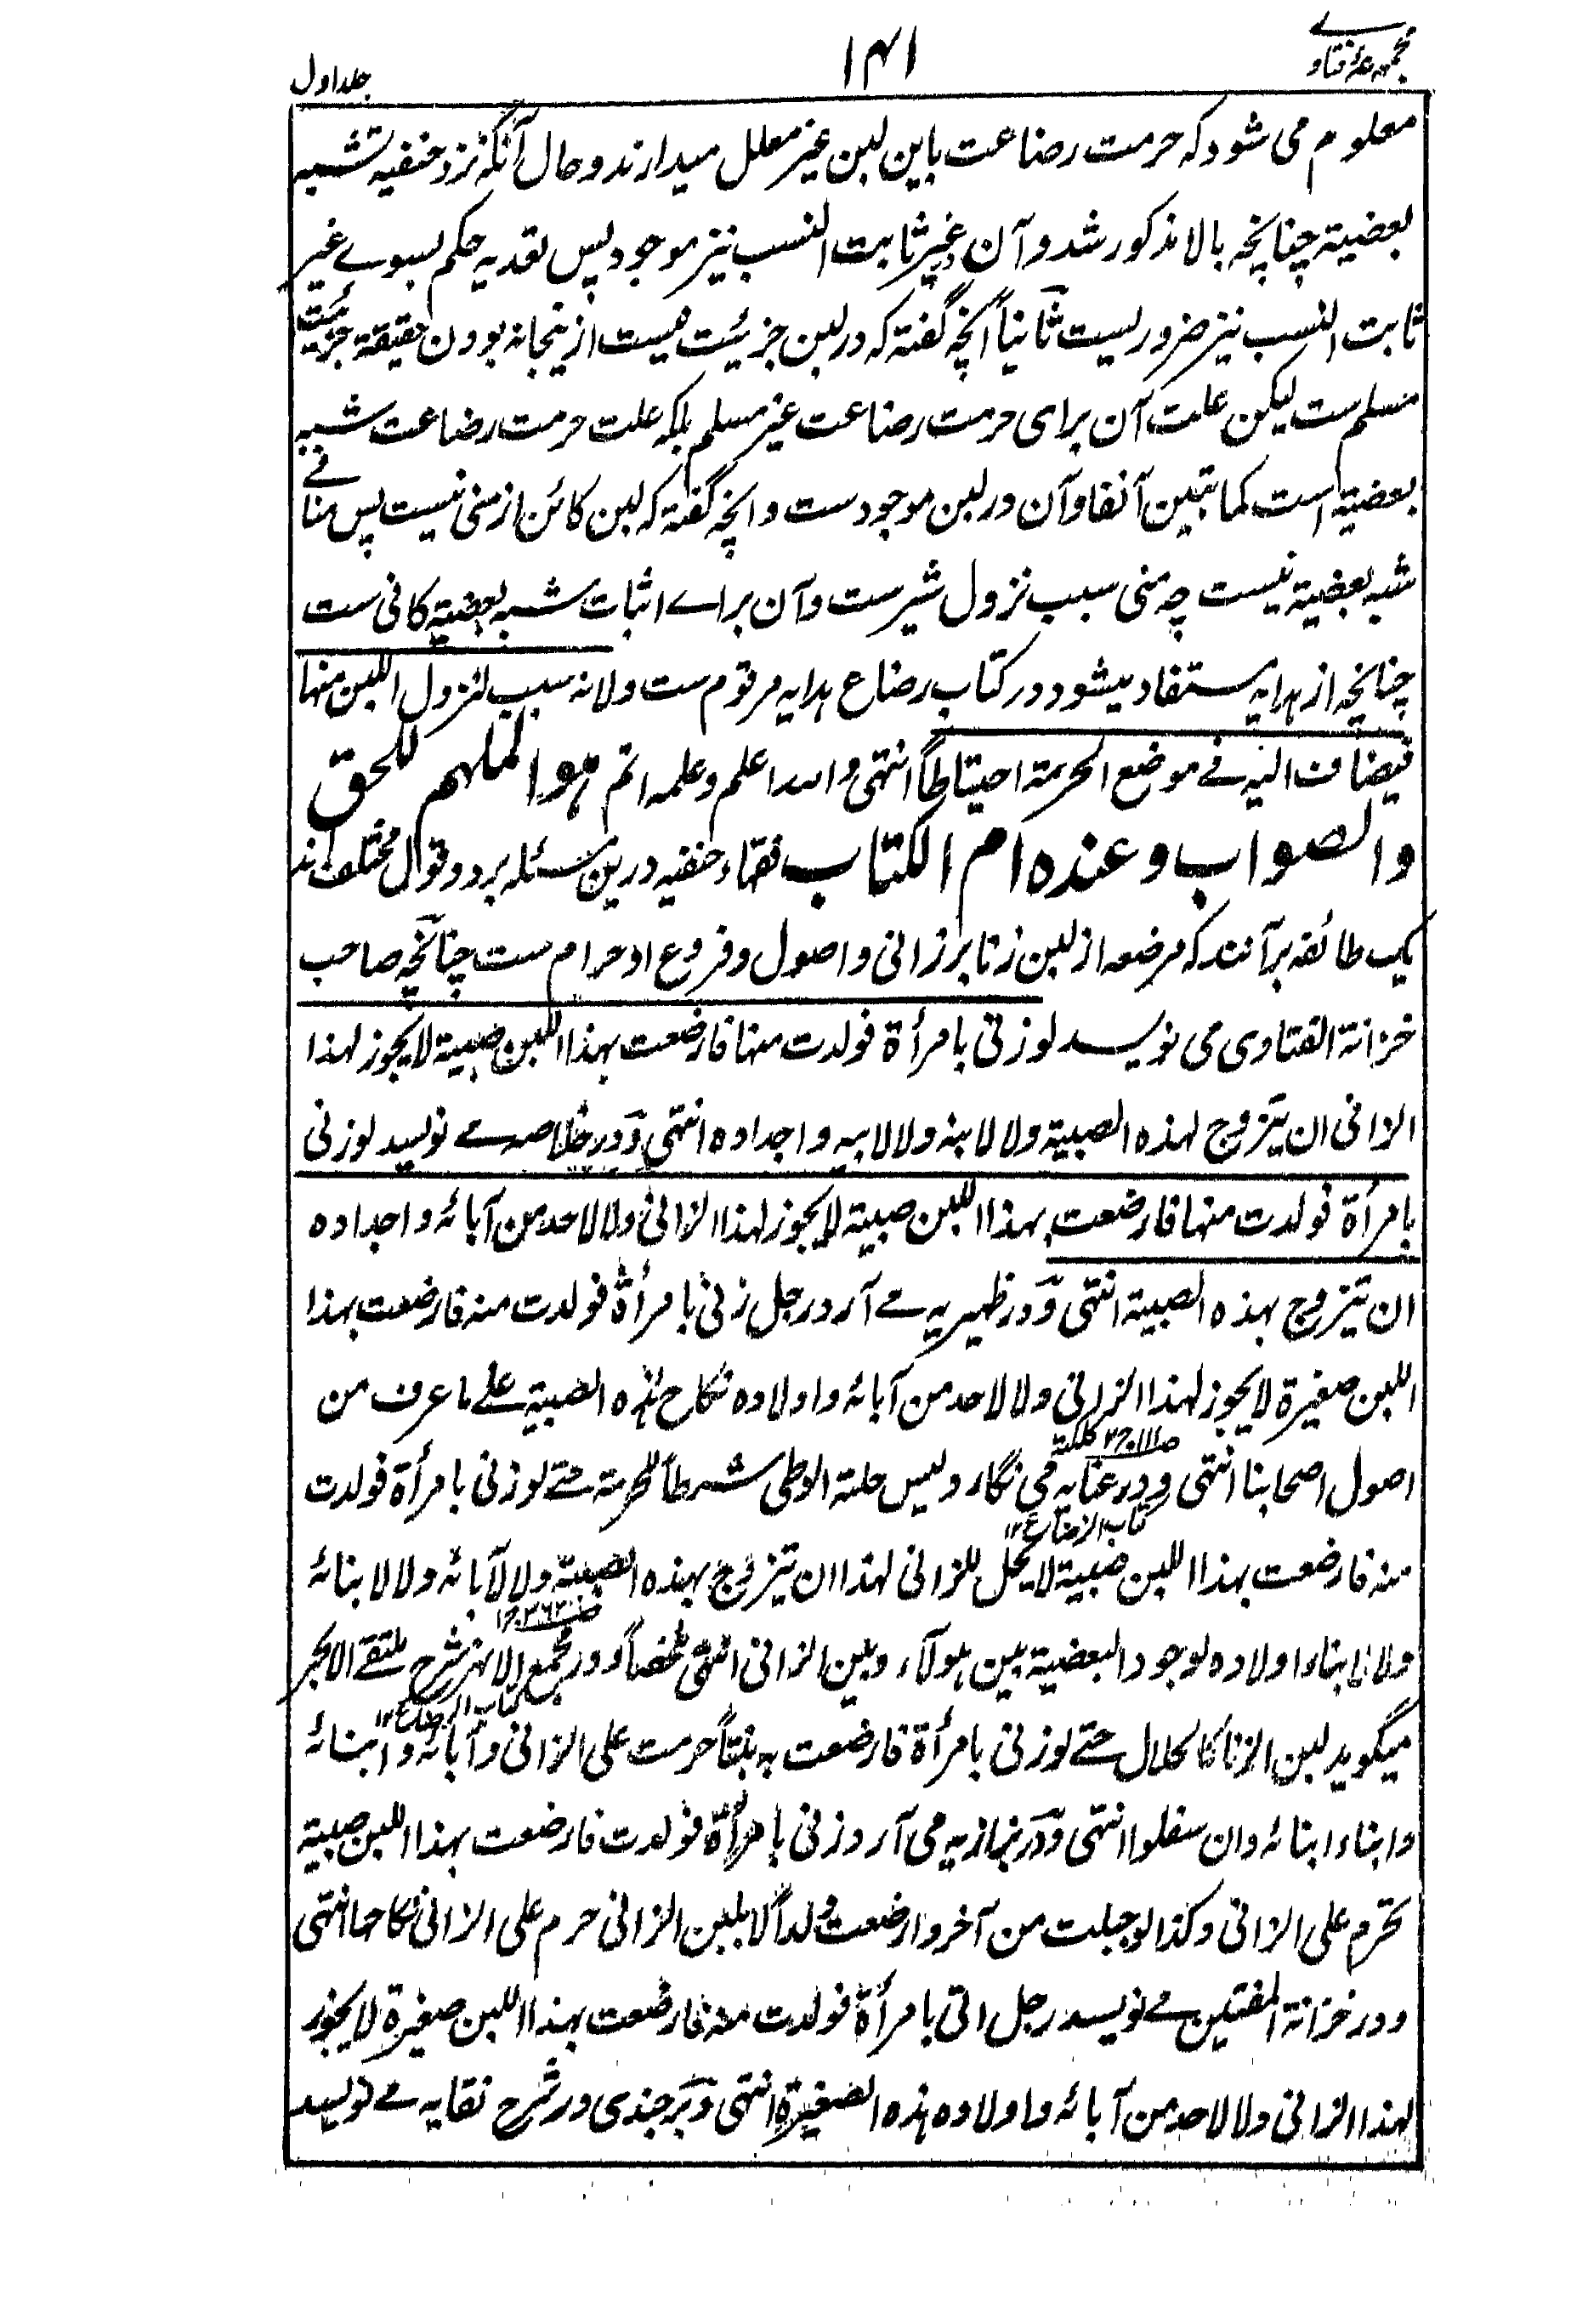 مجموعۂ فتاوے
۱۴۱
جلد اول
معلوم می شود کہ حرمت رضاعت باین لبن غیر معلل میدارند و حال آنکہ نزد حنفیہ شبہ
بعضیۃ چنانچہ بالا مذکور شد و آن در غیر ثابت النسب نیز موجود پس تعدیہ حکم بسوے غیر
ثابت النسب نیز ضروریست ثانیاً آنچہ گفتہ کہ در لبن جزئیت نیست ازینجا نہ بودن حقیقۃ جزئیت
مسلم ست لیکن علت آن برای حرمت رضاعت غیر مسلم بلکہ علت حرمت رضاعت شبہ
بعضیۃ است کما تبین آنفا و آن در لبن موجودست و آنچہ گفتہ کہ لبن کائن از منی نیست پس منافے
شبہ بعضیۃ نیست چہ منی سبب نزول شیرست و آن براے اثبات شبہ بعضیۃ کافی ست
چنانچہ از ہدایہ مستفاد میشود در کتاب رضاع ہدایہ مرقوم ست ولانہ سبب لنزول اللبن منہا
فیضاف الیہ فے موضع الحرمۃ احتیاطاً انتہی واللہ اعلم وعلمہ اتم ہو الملہم للحق
والصواب وعندہ ام الکتاب فقہاء حنفیہ درین مسئلہ بر دو قول مختلف اند
یک طائفہ برآنند کہ مرضعہ از لبن زنا بر زانی و اصول و فروع او حرام ست چنانچہ صاحب
خزانۃ الفتاوی می نویسد لو زنی بامرأۃ فولدت منہا فارضعت بہذا اللبن صبیۃ لا یجوز لہذا
الزانی ان یتزوج لہذہ الصبیۃ ولا لابنہ ولا لابیہ واجدادہ انتہی و در خلاصہ مے نویسد لو زنی
بامرأۃ فولدت منہا فارضعت بہذا اللبن صبیۃ لا یجوز لہذا الزانی ولا لاحد من آبائہ واجدادہ
ان یتزوج بہذہ الصبیۃ انتہی و در ظہیریہ مے آرد رجل زنی بامرأۃ فولدت منہ فارضعت بہذا
اللبن صغیرۃ لا یجوز لہذا الزانی ولا لاحد من آبائہ واولادہ نکاح ہذہ الصبیۃ علے ما عرف من
اصول اصحابنا انتہی و در عنایہ می نگارد ولیس حلۃ الوطی شرطاً للحرمۃ حتے لو زنی بامرأۃ فولدت
منہ فارضعت بہذا اللبن صبیۃ لا یحل للزانی لہذا ان یتزوج بہذہ الصبیۃ ولا لآبائہ ولا لابنائہ
کتاب الرضاع ۱۲
ولا لابناء اولادہ لوجود البعضیۃ بین ہولآء وبین الزانی انتہی ملخصاً و در مجمع الانہر شرح ملتقے الابحر
کتاب الرضاع ۱۲
میگوید لبن الزنا کالحلال حتے لو زنی بامرأۃ فارضعت بہ بنتاً حرمت علی الزانی وآبائہ وابنائہ
وابناء ابنائہ وان سفلوا انتہی و در بزازیہ می آرد زنی بامرأۃ فولدت فارضعت بہذا اللبن صبیۃ
تحرم علی الزانی وکذا لو حبلت من آخر وارضعت ولداً لا بلبن الزانی حرم علی الزانی نکاحہا انتہی
و در خزانۃ المفتین مے نویسد رجل اتی بامرأۃ فولدت منہ فارضعت بہذا اللبن صغیرۃ لا یجوز
لہذا الزانی ولا لاحد من آبائہ واولادہ ہذہ الصغیرۃ انتہی و برجندی در شرح نقایہ مے نویسد